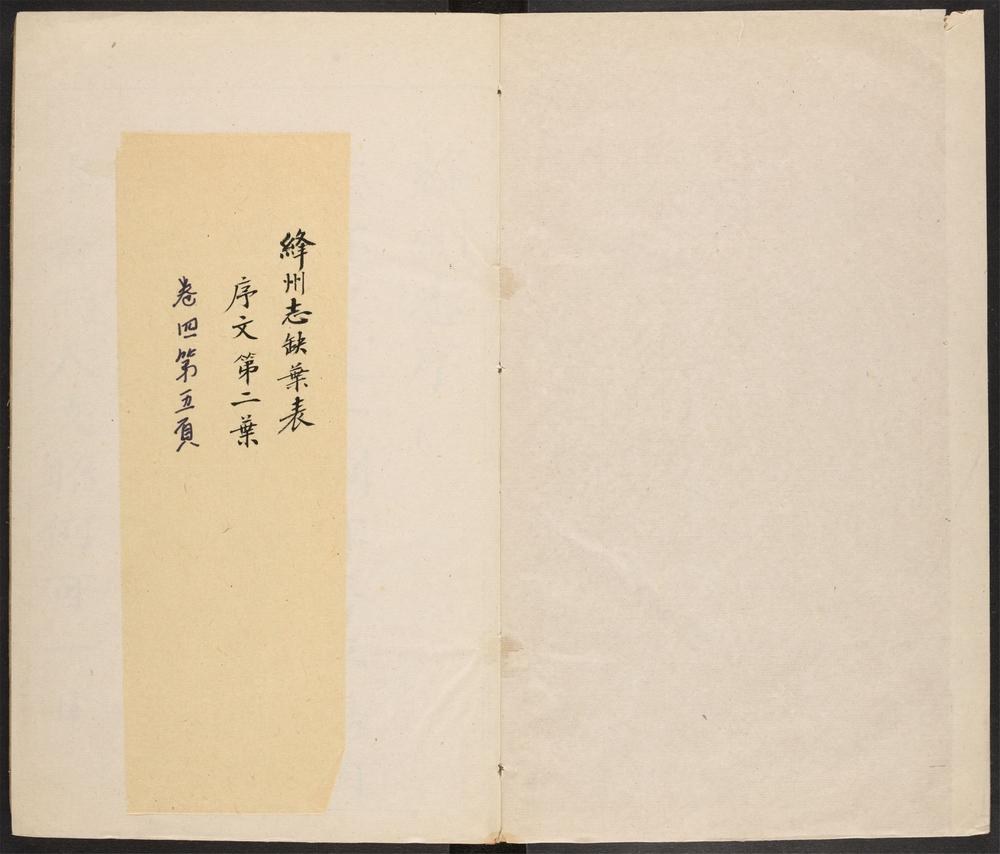 絳州志缺葉表
序文第二葉
卷四第五頁